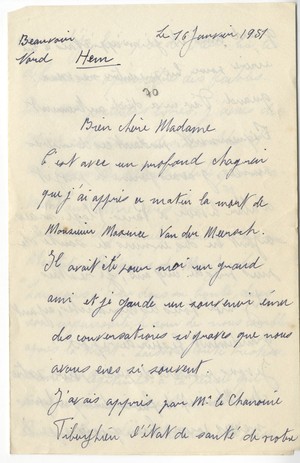 Beauvoir
Nord Hem
Le 16 Janvier 1951
70
Bien chère Madame
C'est avec un profond chagrin
que j'ai appris ce matin la mort de
Monsieur Maxence Van der Meersch.
Il avait été pour moi un grand
ami et je garde un souvenir ému
des conversations si graves que nous
avons eues si souvent.
J'avais appris par Mr le Chanoine
l'état de santé de votre